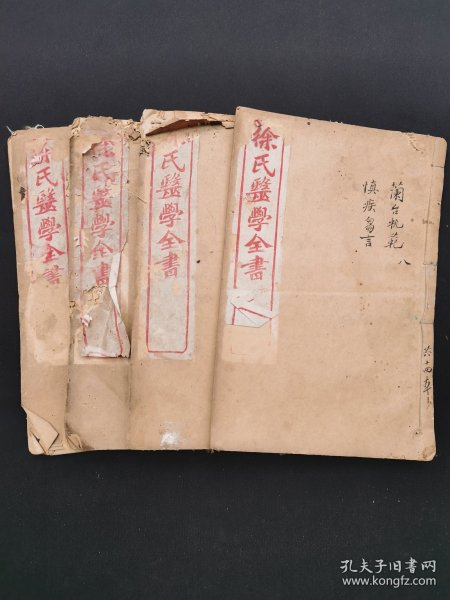 徐氏毉學全書
氏毉學全書
氏毉學全書
徐氏毉學全書
蘭台軌範 八
慎疾芻言
孔夫子旧书网
www.kongfz.com